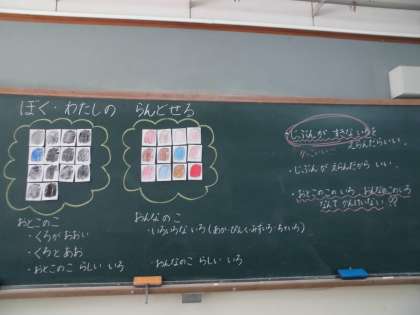 ぼく・わたしの らんどせる
おとこのこ
・くろが おおい
・くろと あお
・おとこのこ らしい いろ
おんなのこ
・いろいろな いろ (あか・ぴんく・みずいろ・ちゃいろ)
・おんなのこ らしい いろ
・じぶんが すきないろを
えらんだらいい。
・じぶんが えらんだから いい。
・おとこのこの いろ、おんなのこのいろ
なんて かんけいない!!